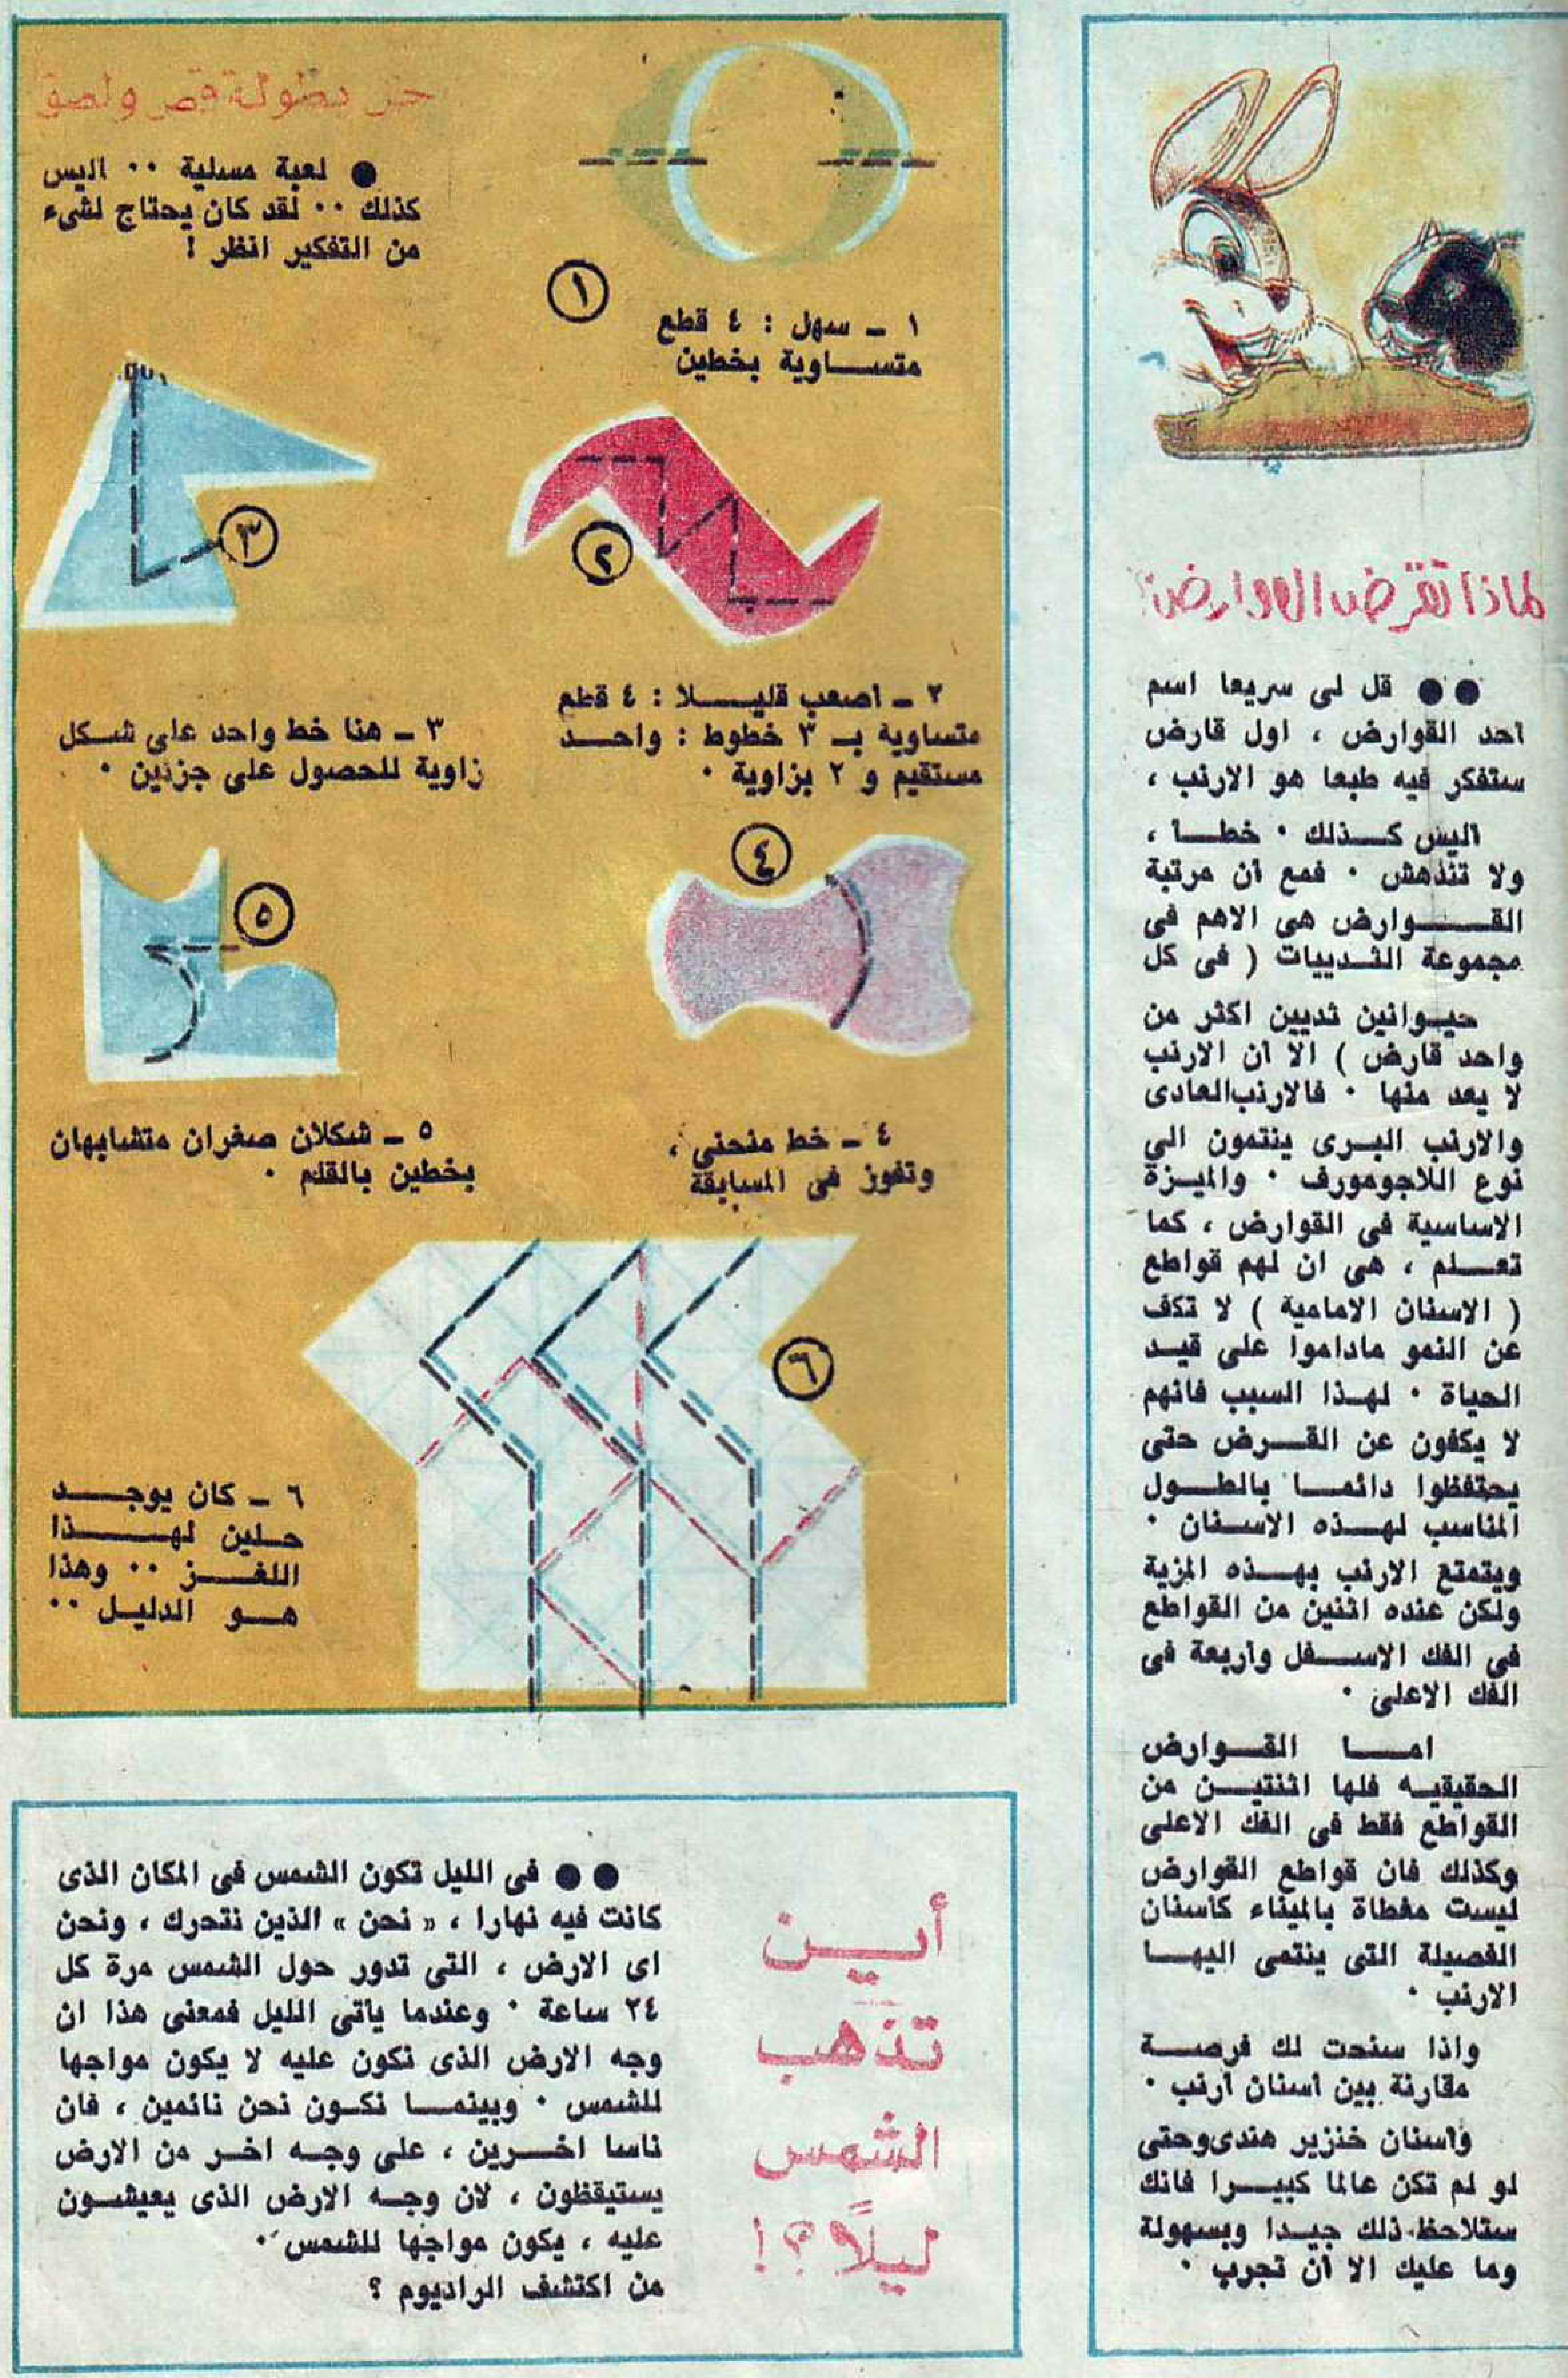 لماذا تقرض القوارض؟
●● قل لى سريعا اسم
أحد القوارض ، اول قارض
ستفكر فيه طبعا هو الارنب ،
أليس كــذلك . خطــأ ،
ولا تندهش . فمع أن مرتبة
القــــوارض هى الاهم فى
مجموعة الثــدييات ( فى كل
حيــوانين ثديين اكثر من
واحد قارض ) الا أن الارنب
لا يعد منها . فالارنب العادى
والارنب البــرى ينتمون الى
نوع اللاجومورف . والميــزة
الاساسية فى القوارض ، كما
تعــلم ، هى ان لهم قواطع
( الاسنان الامامية ) لا تكف
عن النمو ماداموا على قيــد
الحياة . لهــذا السبب فانهم
لا يكفون عن القــرض حتى
يحتفظوا دائمــا بالطــول
المناسب لهــذه الاســنان .
ويتمتع الارنب بهــذه المزية
ولكن عنده اثنين من القواطع
فى الفك الاســفل وأربعة فى
الفك الاعلى .
امــا القــوارض
الحقيقيــه فلها اثنتيــن من
القواطع فقط فى الفك الاعلى
وكذلك فان قواطع القوارض
ليست مغطاة بالميناء كأسنان
الفصيلة التى ينتمى اليهــا
الارنب .
واذا سنحت لك فرصــة
مقارنة بين أسنان أرنب .
وأسنان خنزير هندى وحتى
لو لم تكن عالما كبيــرا فانك
ستلاحظ ذلك جيــدا وبسهولة
وما عليك الا أن تجرب .
حل بطولة قص ولصق
● لعبة مسلية .. اليس
كذلك .. لقد كان يحتاج لشىء
من التفكير انظر !
١
١ ــ سهل : ٤ قطع
متســاوية بخطين
٢
٣
٢ ــ أصعب قليــلا : ٤ قطع
متساوية بـ ٣ خطوط : واحــد
مستقيم و ٢ بزاوية .
٣ ــ هنا خط واحد على شــكل
زاوية للحصول على جزئين .
٤
٥
٤ ــ خط منحنى ،
وتفوز فى المسابقة
٥ ــ شكلان صغران متشابهان
بخطين بالقلم .
٦
٦ ــ كان يوجــد
حــلين لهــــذا
اللغــز .. وهذا
هــو الدليــل ..
أيــن
تذهب
الشمس
ليلًا ؟!
●● فى الليل تكون الشمس فى المكان الذى
كانت فيه نهارا ، « نحن » الذين نتحرك ، ونحن
اى الارض ، التى تدور حول الشمس مرة كل
٢٤ ساعة . وعندما يأتى الليل فمعنى هذا ان
وجه الارض الذى نكون عليه لا يكون مواجها
للشمس . وبينمــا نكــون نحن نائمين ، فان
ناسا اخــرين ، على وجــه اخر من الارض
يستيقظون ، لان وجــه الارض الذى يعيشــون
عليه ، يكون مواجها للشمس .
من اكتشف الراديوم ؟